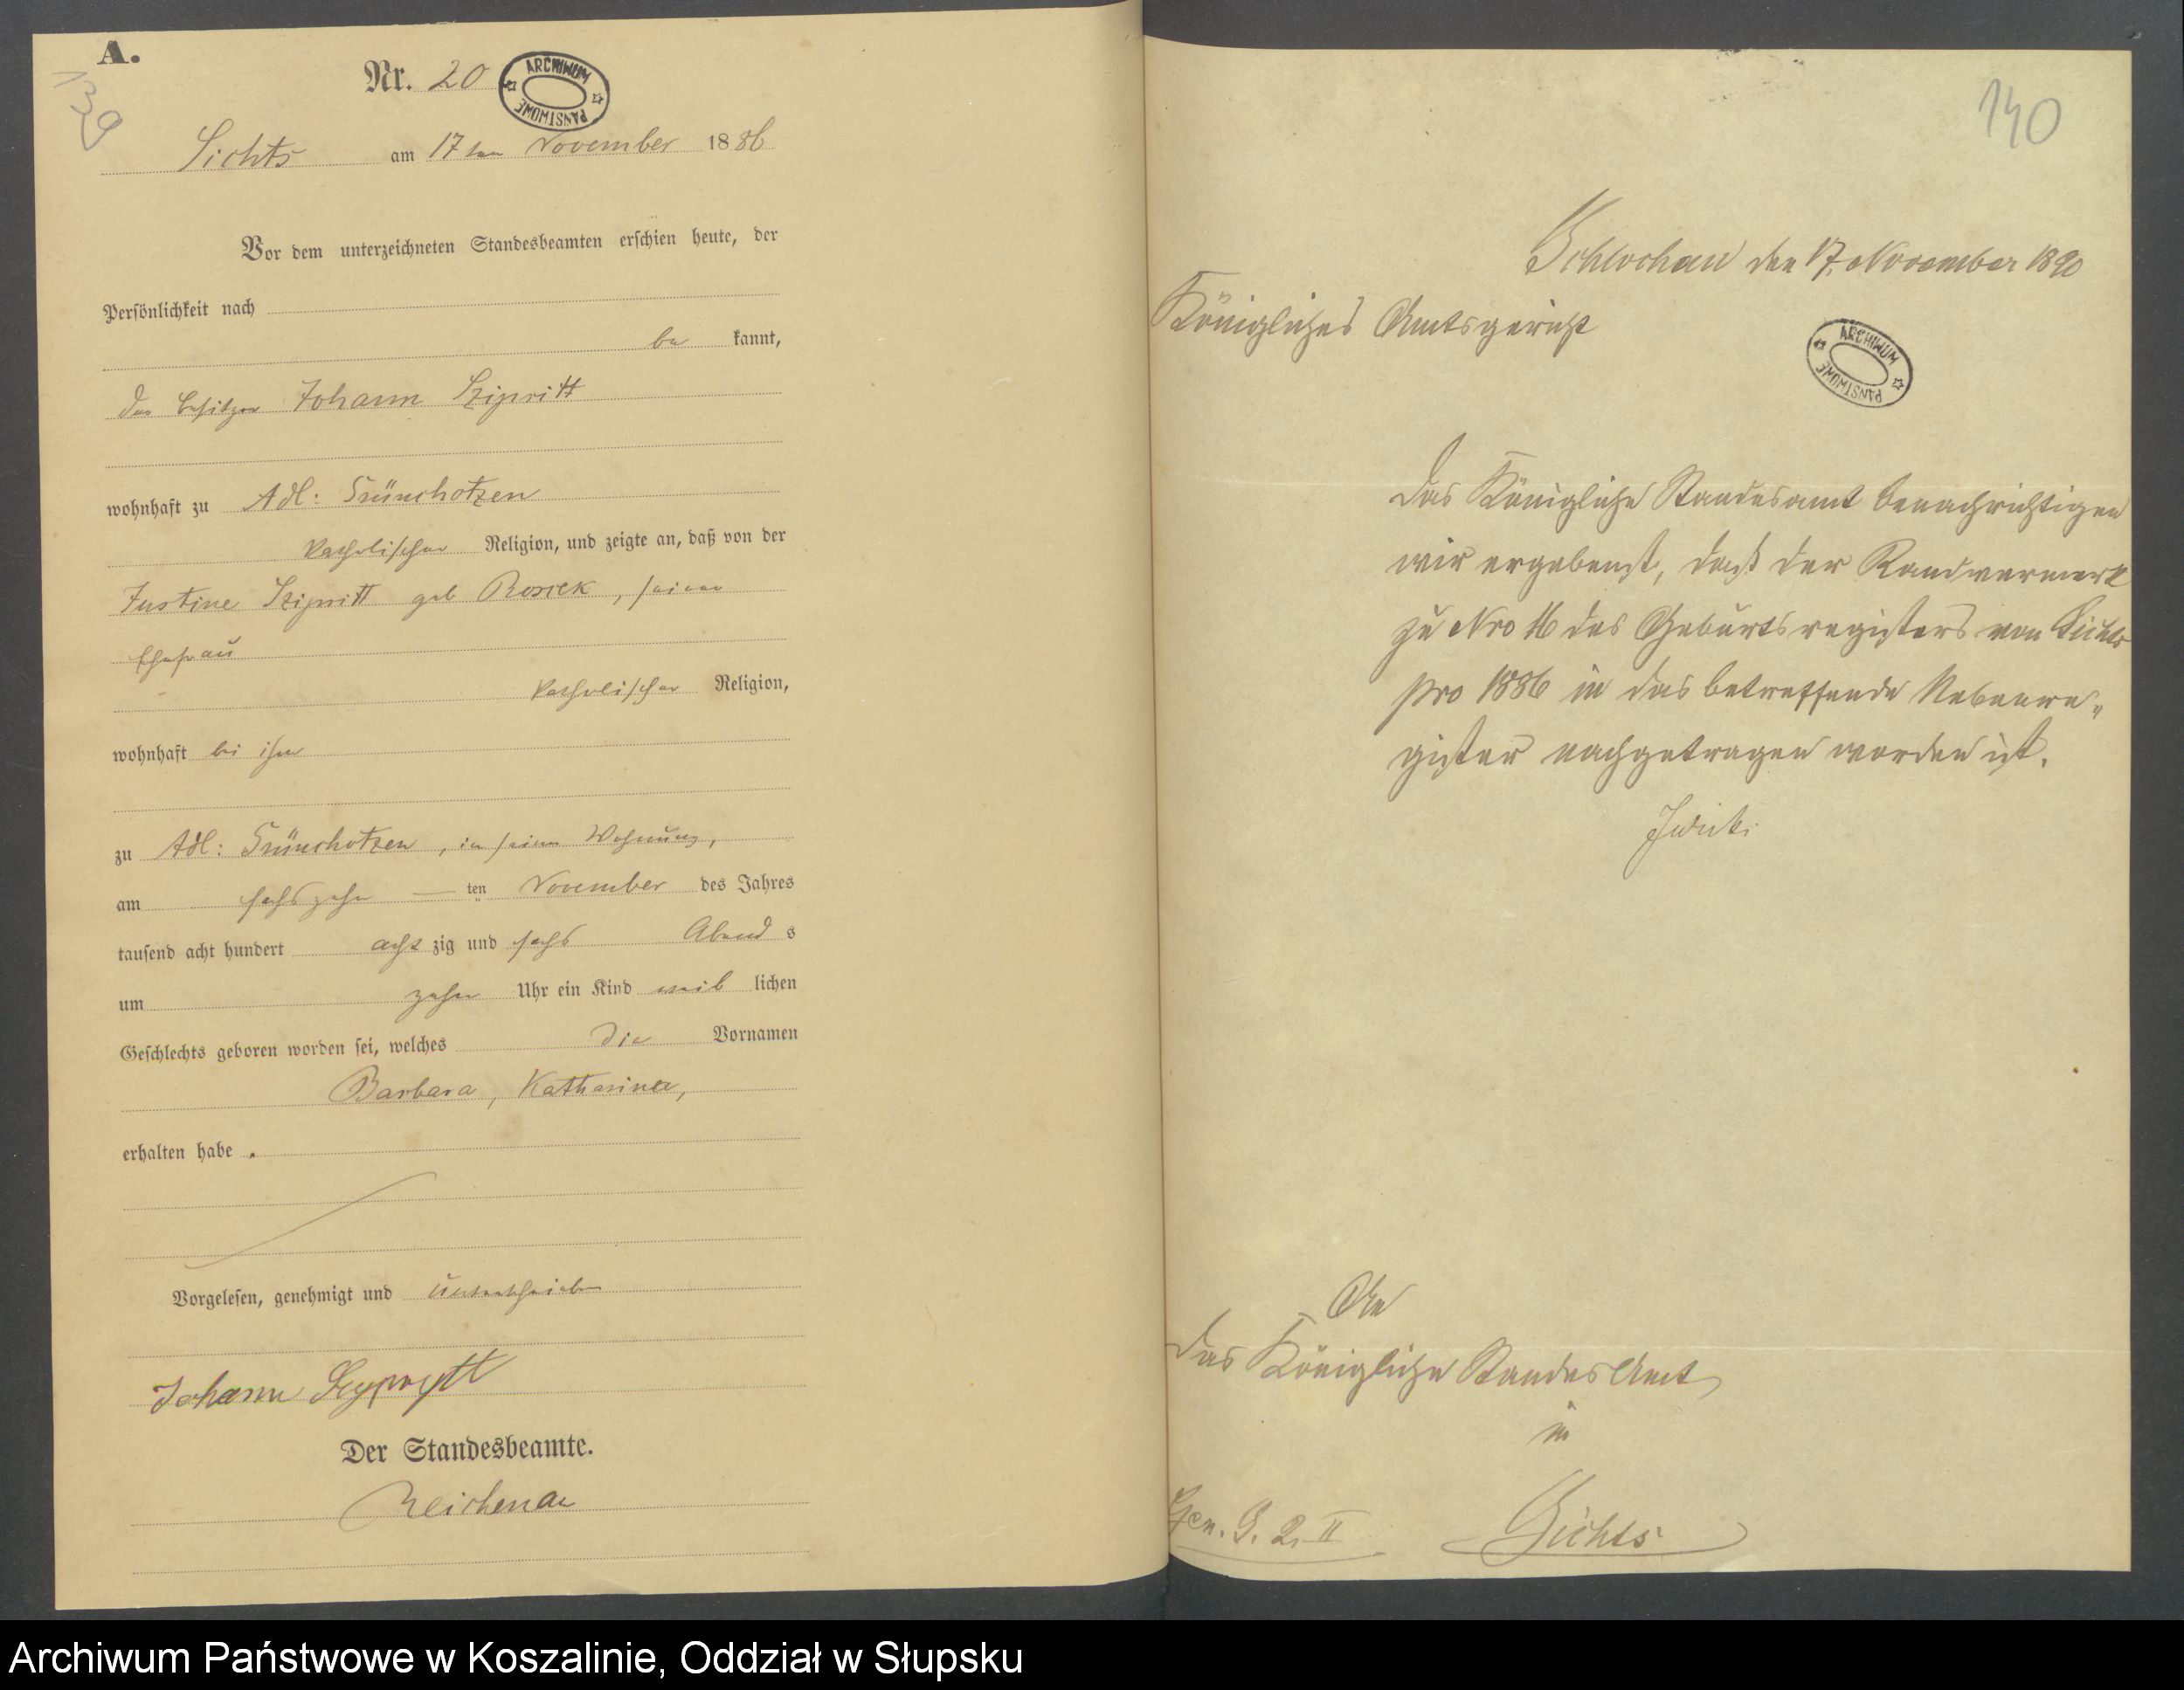 A.
139
Nr. 20
ARCHIWUM PAŃSTWOWE
Sichts am 17ten November 1886
Vor dem unterzeichneten Standesbeamten erschien heute, der
Persönlichkeit nach
be kannt,
der Besitzer Johann Szipritt
wohnhaft zu Adl: Grünchotzen
katholischer Religion, und zeigte an, daß von der
Justine Szipritt geb Rosiek, seiner
Ehefrau
katholischer Religion,
wohnhaft bei ihm
zu Adl: Grünchotzen, in seiner Wohnung,
am sechszehn ten November des Jahres
tausend acht hundert acht zig und sechs Abend s
um zehn Uhr ein Kind weib lichen
Geschlechts geboren worden sei, welches die Vornamen
Barbara, Katharina,
erhalten habe .
Vorgelesen, genehmigt und unterschrieben
Johann Szyprytt
Der Standesbeamte.
Reichenau
140
Schlochau den 17. November 1890
Königliches Amtsgericht
ARCHIWUM PAŃSTWOWE
Das Königliche Standesamt benachrichtigen
wir ergebenst, daß der Randvermerk
zu Nro 16 des Geburtsregisters von Sichts
pro 1886 in das betreffende Nebenre„
gister nachgetragen worden ist.
An
das Königliche Standes Amt
in
Sichts
Gen. G. 2. II
Archiwum Państwowe w Koszalinie, Oddział w Słupsku